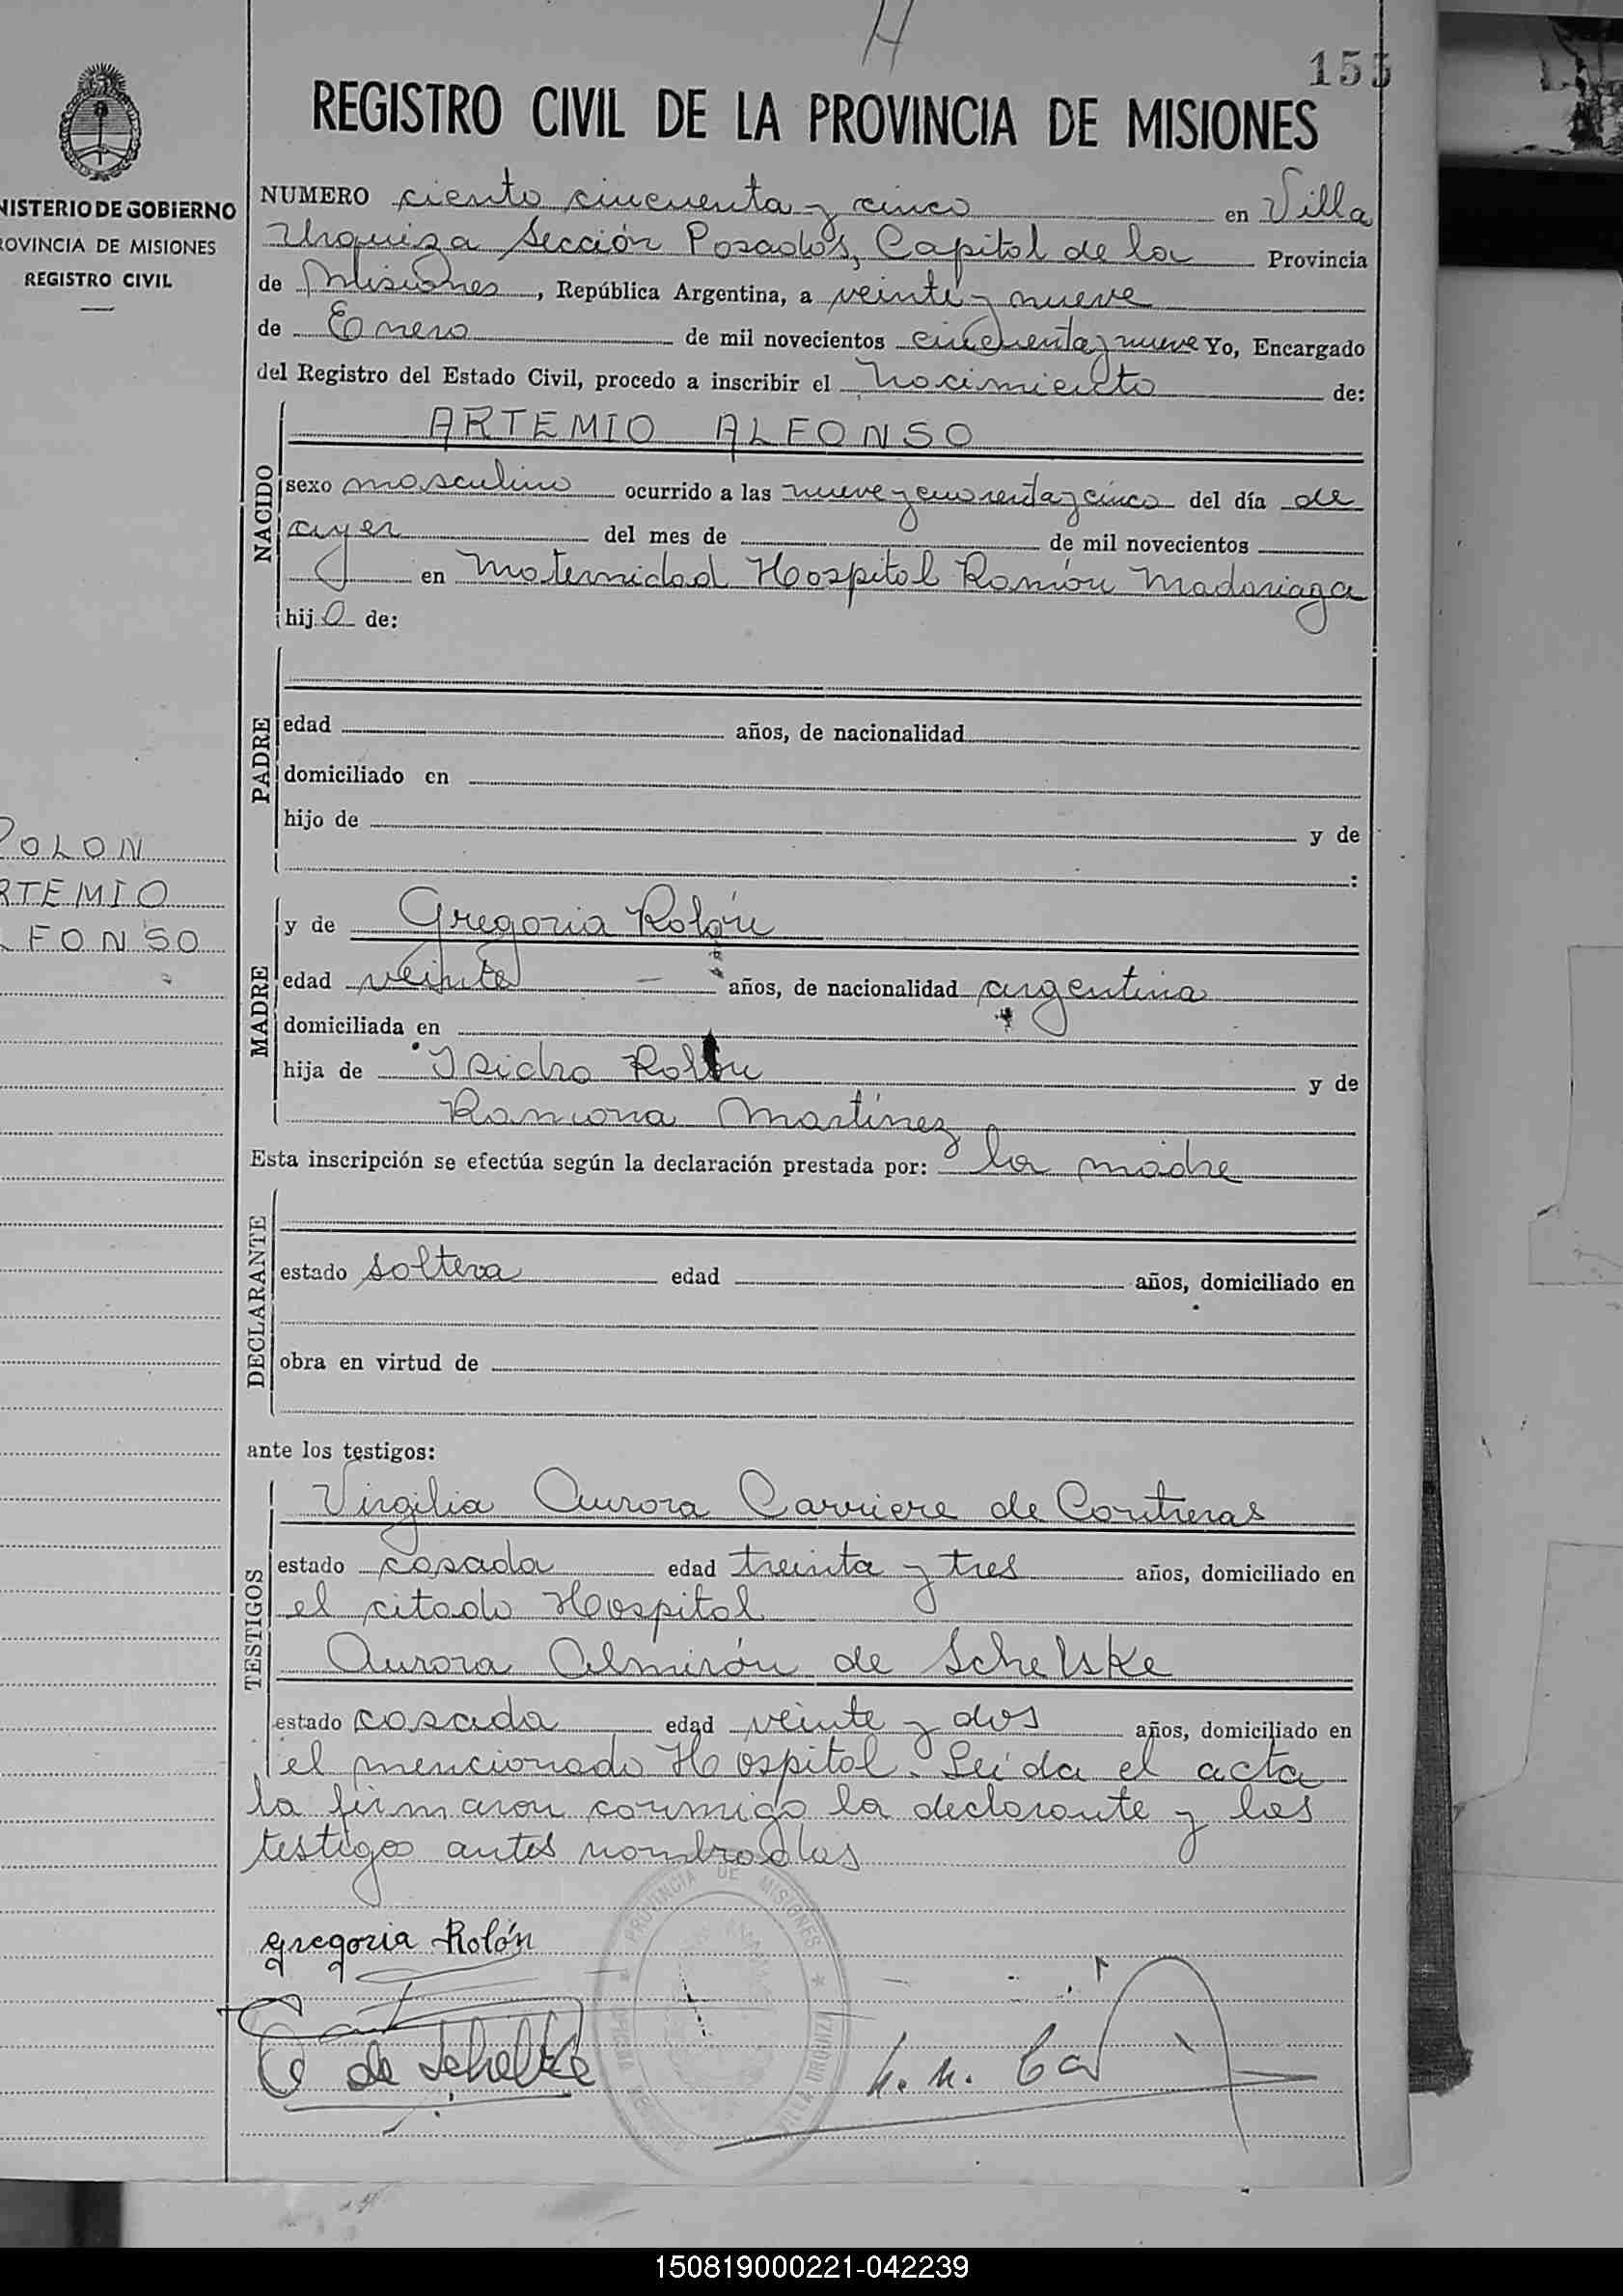 H
155
REGISTRO CIVIL DE LA PROVINCIA DE MISIONES
NISTERIO DE GOBIERNO
ROVINCIA DE MISIONES
REGISTRO CIVIL
NUMERO ciento cincuenta y cinco en Villa
Urquiza Sección Posadas, Capital de la Provincia
de Misiones, República Argentina, a veinte y nueve
de Enero de mil novecientos cincuenta y nueve Yo, Encargado
del Registro del Estado Civil, procedo a inscribir el Nacimiento de:
NACIDO
ARTEMIO ALFONSO
sexo masculino ocurrido a las nueve y cuarenta y cinco del día de
ayer del mes de de mil novecientos
en Maternidad Hospital Ramón Madariaga
hijo de:
PADRE
edad años, de nacionalidad
domiciliado en
hijo de y de
:
ROLON
RTEMIO
LFONSO
MADRE
y de Gregoria Rolón
edad veinte años, de nacionalidad argentina
domiciliada en
hija de Isidro Rolón y de
Ramona Martínez
Esta inscripción se efectúa según la declaración prestada por: la madre
DECLARANTE
estado soltera edad años, domiciliado en
obra en virtud de
ante los testigos:
TESTIGOS
Virgilia Aurora Carriere de Contreras
estado casada edad treinta y tres años, domiciliado en
el citado Hospital
Aurora Almirón de Schelske
estado casada edad veinte y dos años, domiciliado en
el mencionado Hospital. Leída el acta
la firmaron conmigo la declarante y las
testigo antes nombradas
gregoria Rolón
de Schelske
PROVINCIA DE MISIONES
VILLA URQUIZA
150819000221-042239